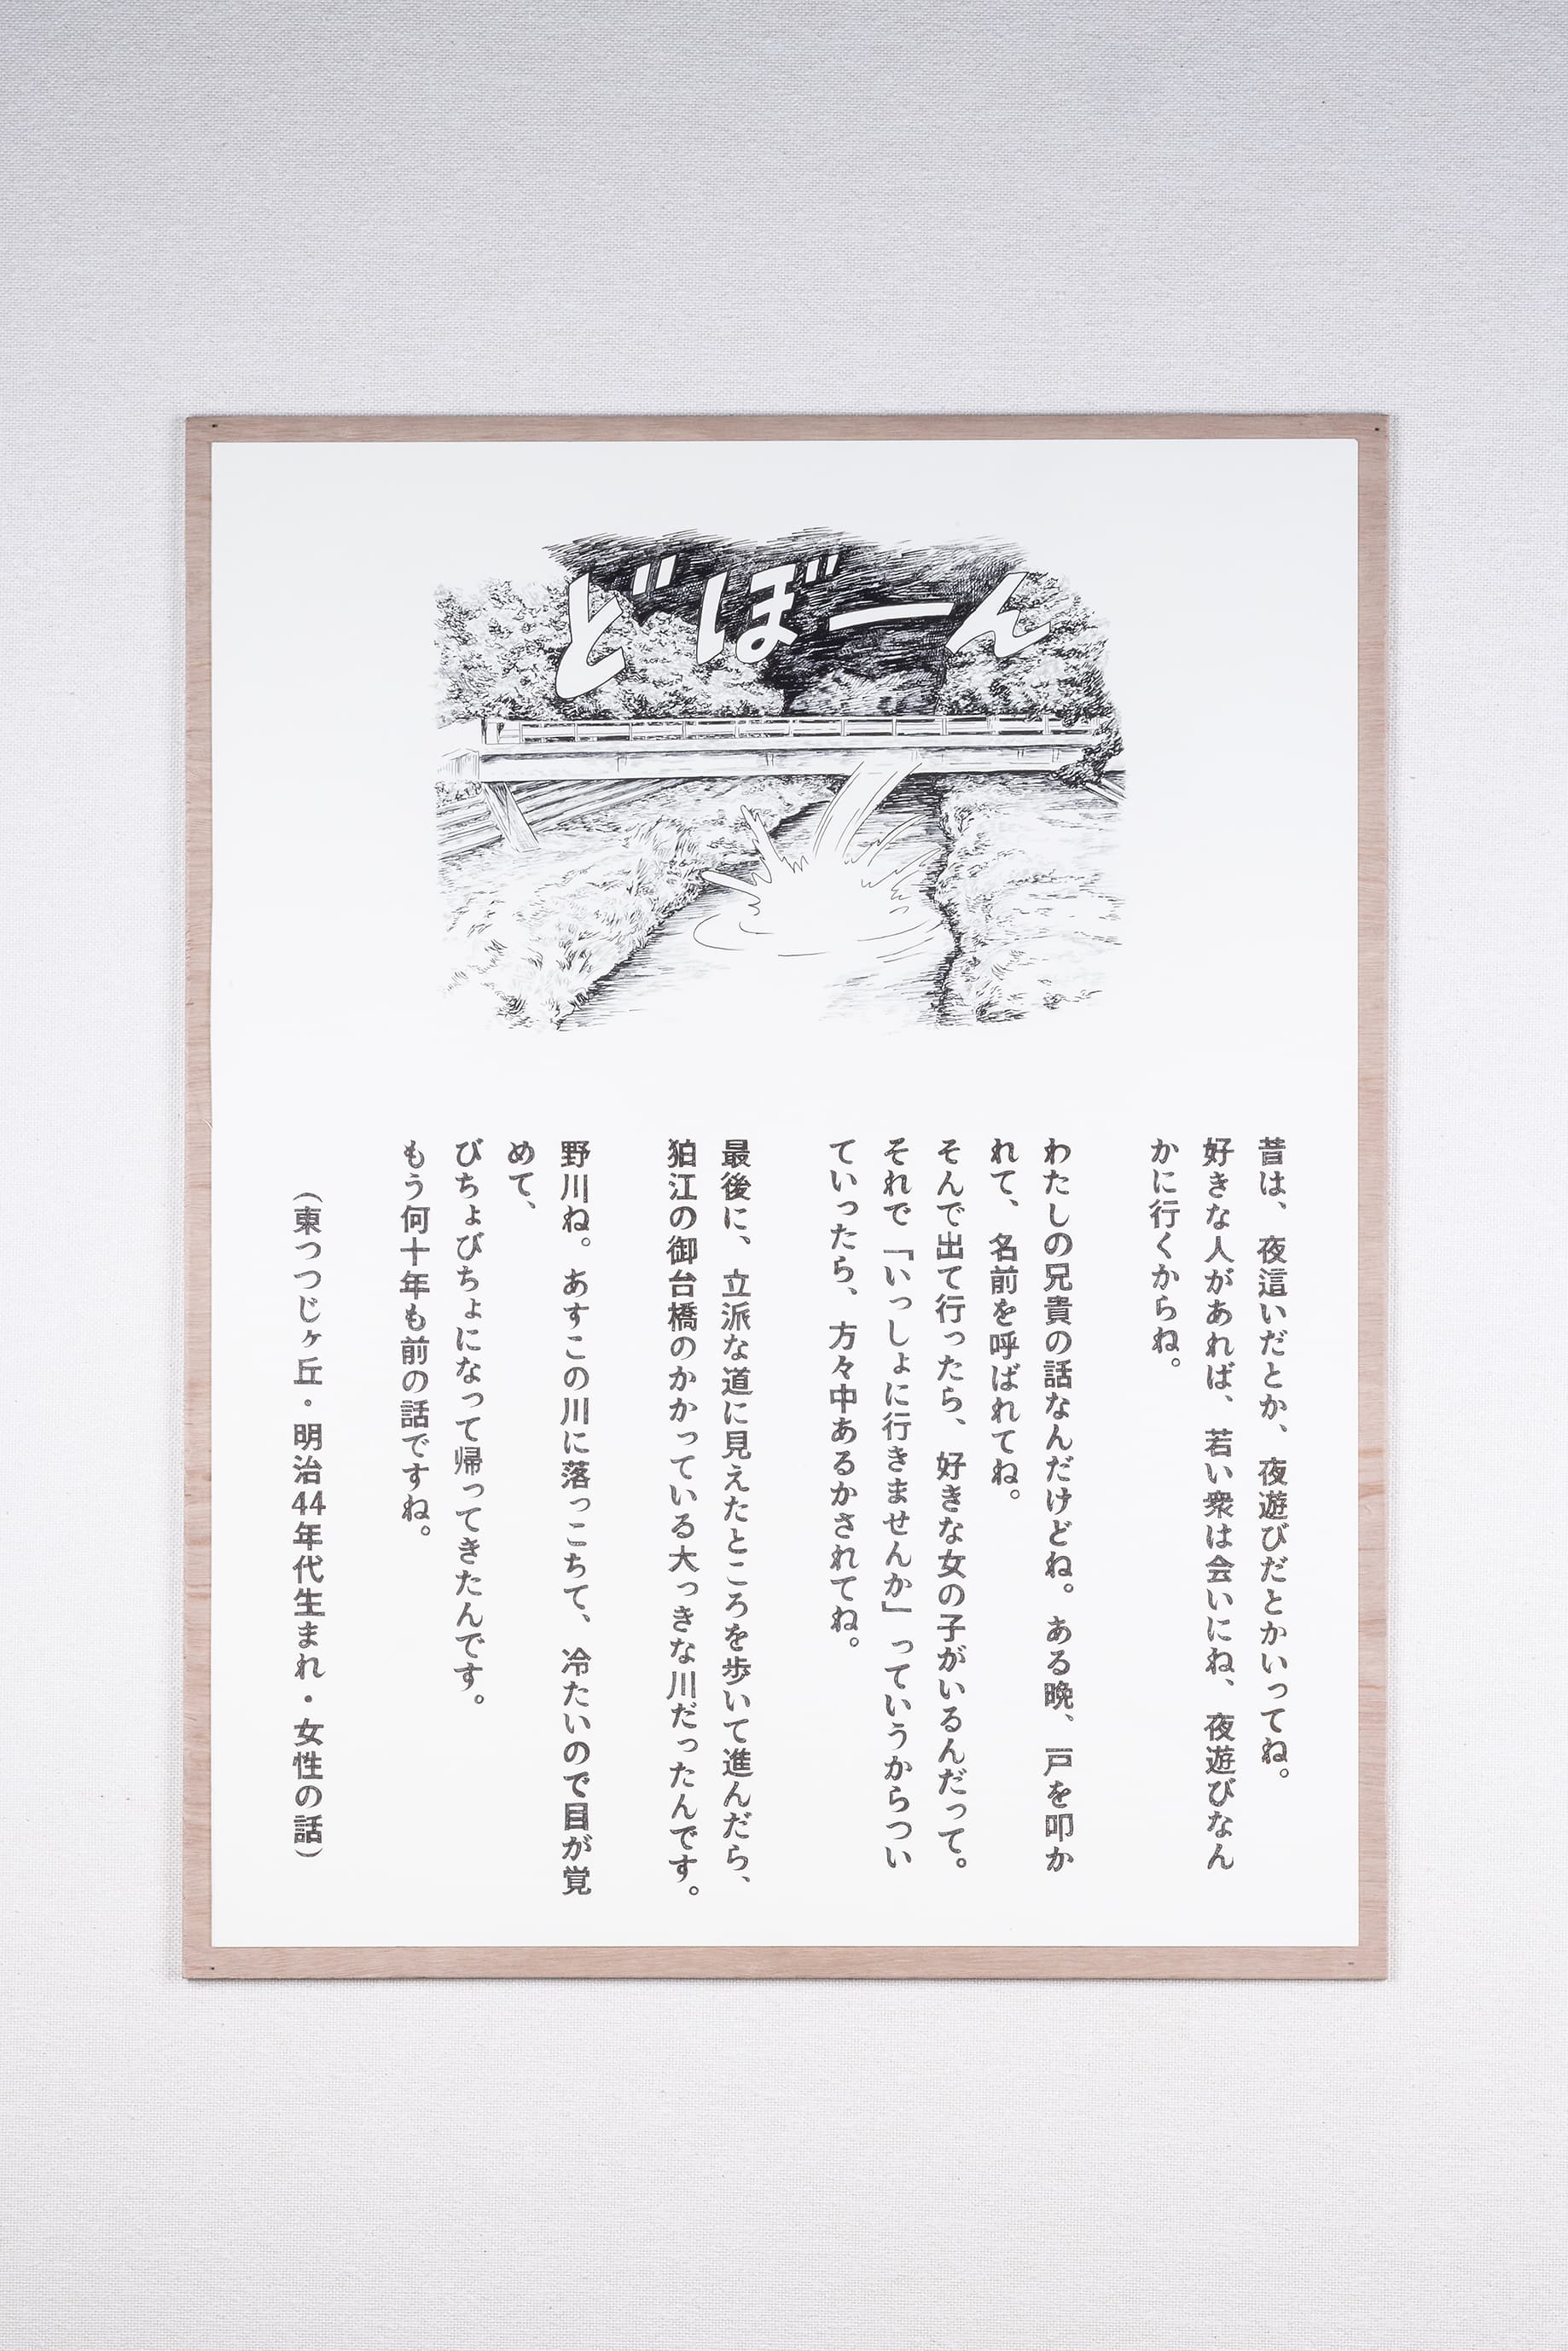 どぼーん
昔は、夜這いだとか、夜遊びだとかいってね。
好きな人があれば、若い衆は会いにね、夜遊びなん
かに行くからね。
わたしの兄貴の話なんだけどね。ある晩、戸を叩か
れて、名前を呼ばれてね。
そんで出て行ったら、好きな女の子がいるんだって。
それで「いっしょに行きませんか」っていうからつい
ていったら、方々中あるかされてね。
最後に、立派な道に見えたところを歩いて進んだら、
狛江の御台橋のかかっている大っきな川だったんです。
野川ね。あすこの川に落っこちて、冷たいので目が覚
めて、
びちょびちょになって帰ってきたんです。
もう何十年も前の話ですね。
（東つつじヶ丘・明治44年代生まれ・女性の話）